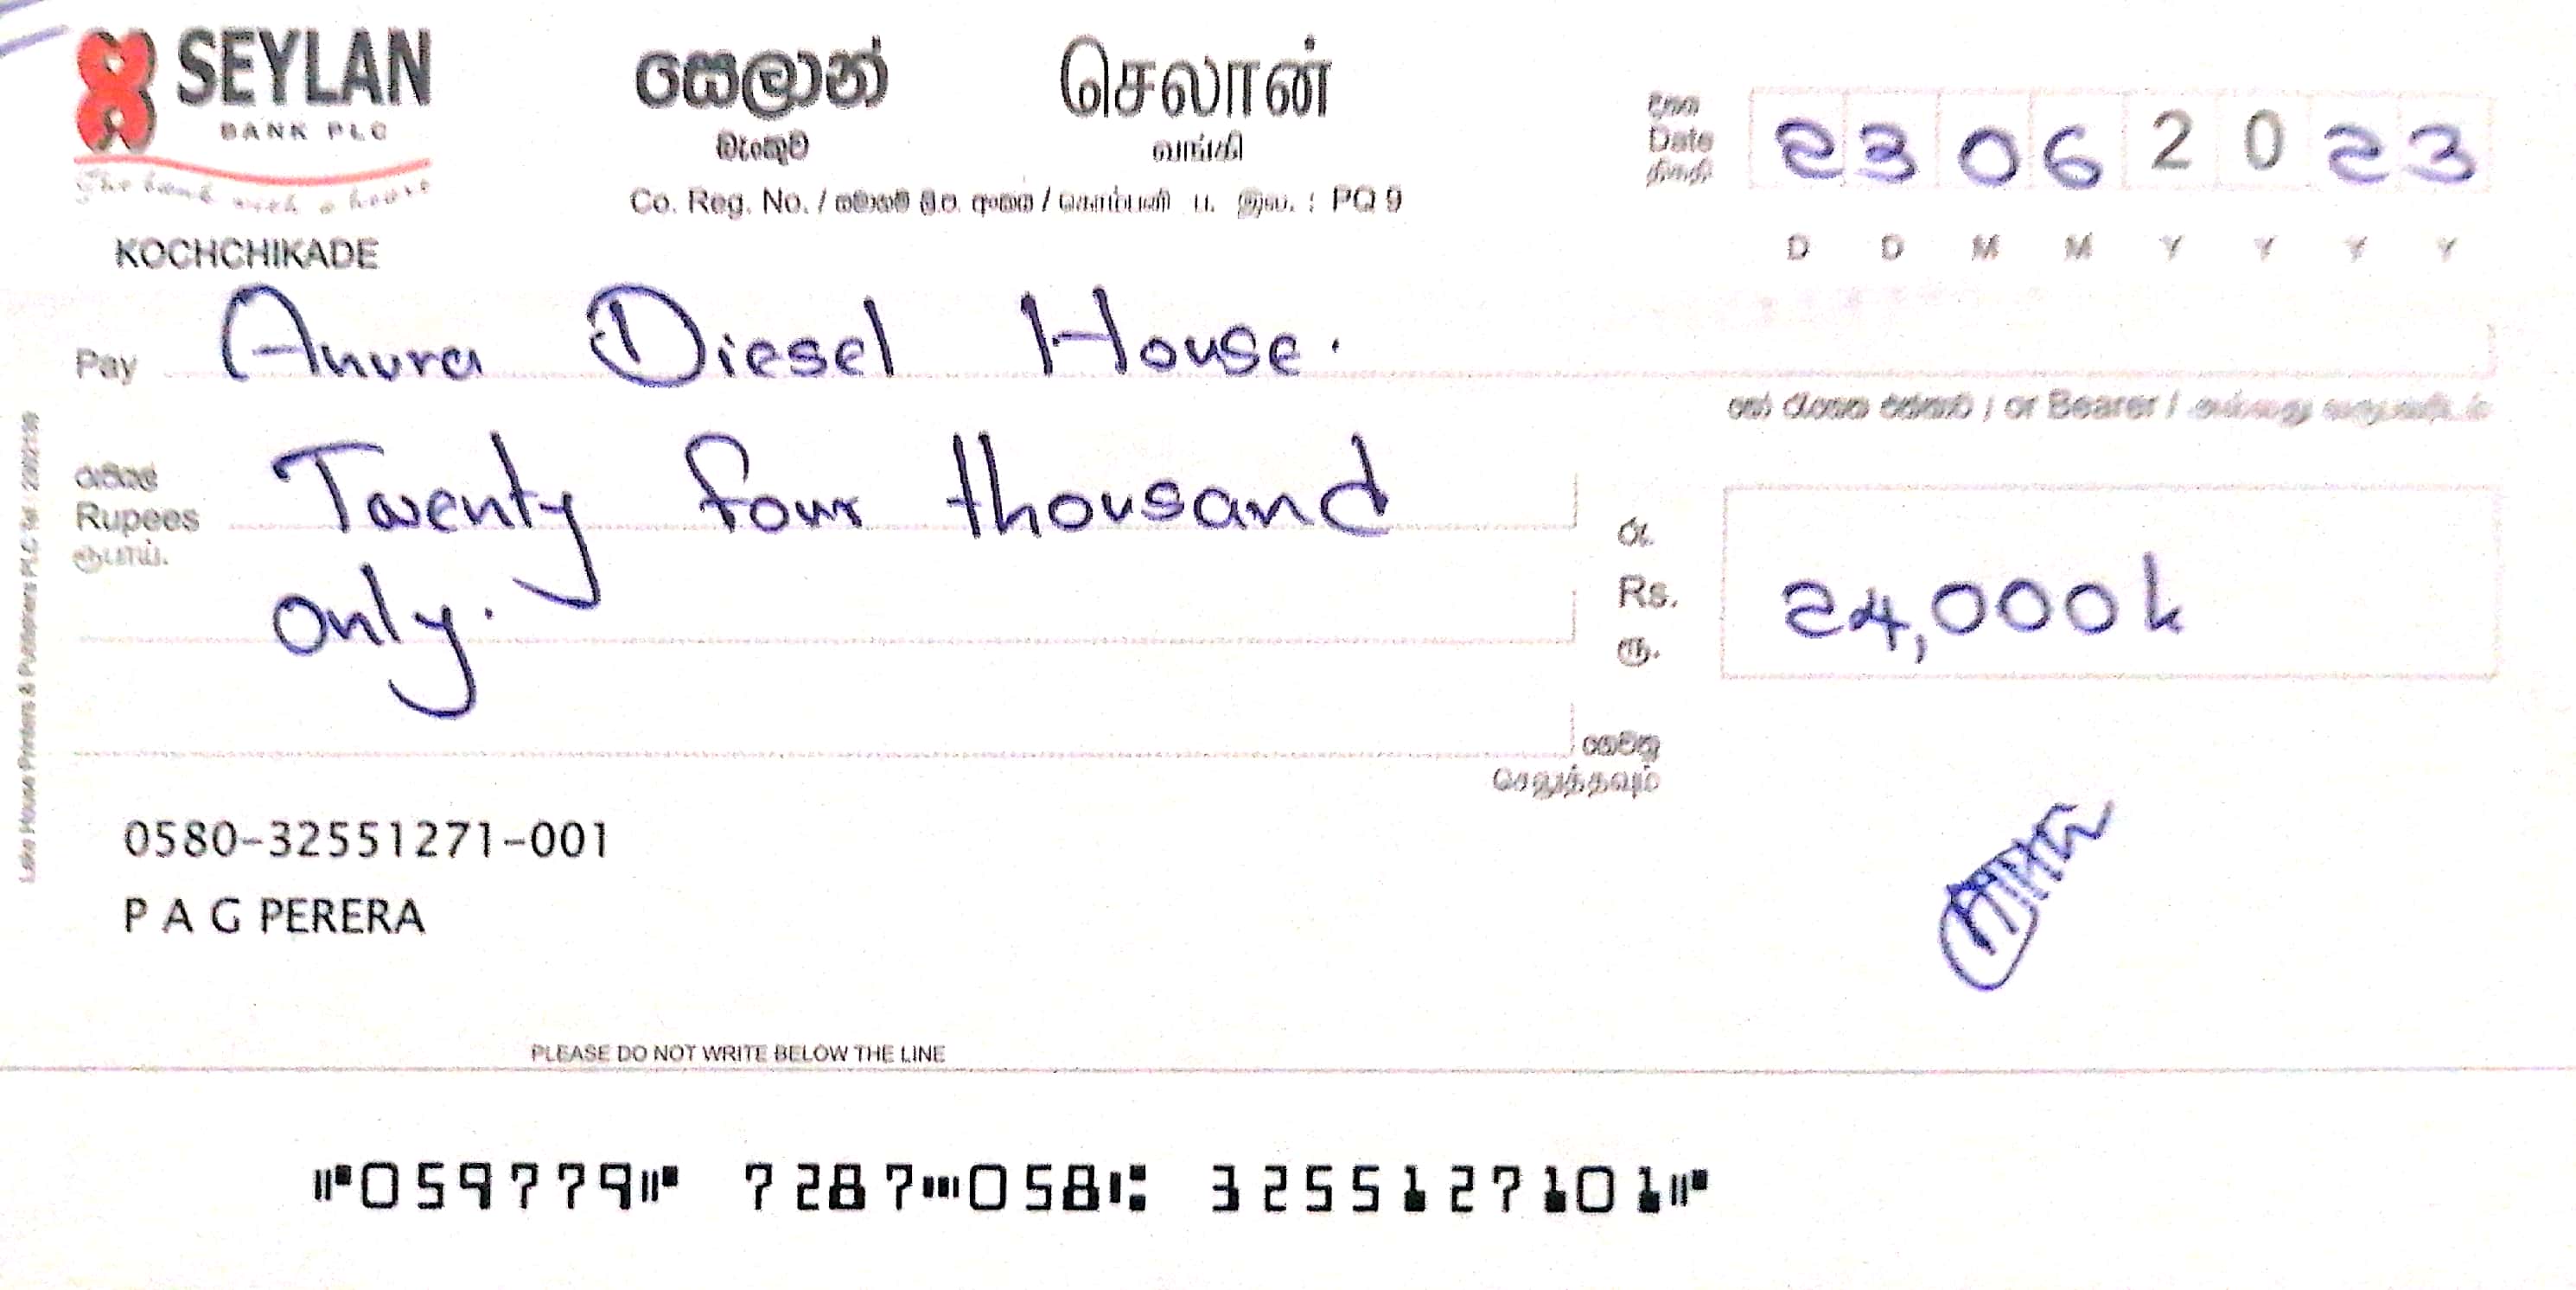 SEYLAN
BANK PLC
The bank with a heart
KOCHCHIKADE
සෙලාන්
බැංකුව
செலான்
வங்கி
Co. Reg. No. / සමාගම් ලි.ප. අංකය / கொம்பனி ப. இல. : PQ 9
දිනය
Date
திகதி
23 06 2023
D D M M Y Y Y Y
Pay Anura Diesel House.
or Bearer /
රුපියල්
Rupees
ரூபாய்.
Twenty four thousand
Only.
රු.
Rs.
ரூ.
24,000
ගෙවනු
செலுத்தவும்
0580-32551271-001
P A G PERERA
Lake House Printers & Publishers PLC
PLEASE DO NOT WRITE BELOW THE LINE
⑈059779⑈ 7287⑉058⑆ 3255127101⑈